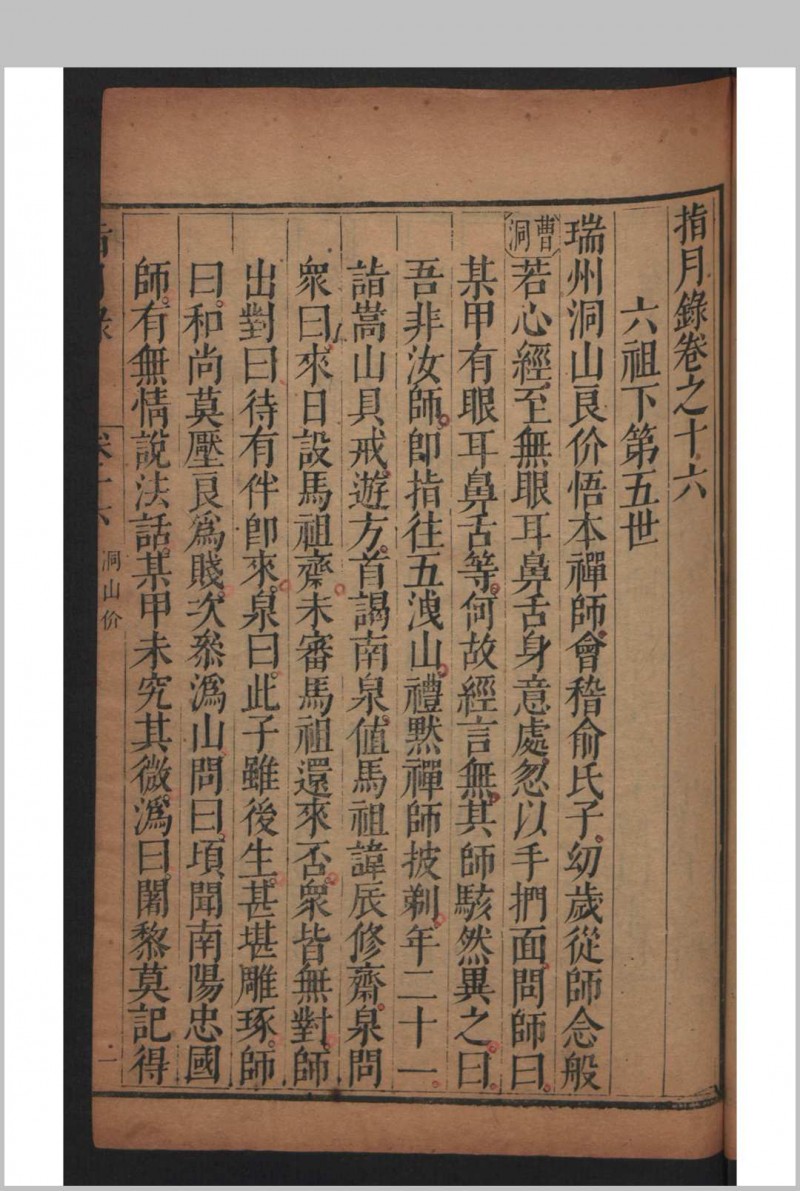 指月錄卷之十六
六祖下第五世
瑞州洞山良价悟本禪師會稽俞氏子幼歲從師念般
曹洞
若心經至無眼耳鼻舌身意處忽以手捫面問師曰
某甲有眼耳鼻舌等何故經言無其師駭然異之曰
吾非汝師卽指往五洩山禮默禪師披剃年二十一
詣嵩山具戒遊方首謁南泉值馬祖諱辰修齋泉問
衆曰來日設馬祖齋未審馬祖還來否衆皆無對師
出對曰待有伴卽來泉曰此子雖後生甚堪雕琢師
曰和尚莫壓良爲賤次叅潙山問曰頃聞南陽忠國
師有無情說法話某甲未究其微潙曰闍黎莫記得
洞山价
一